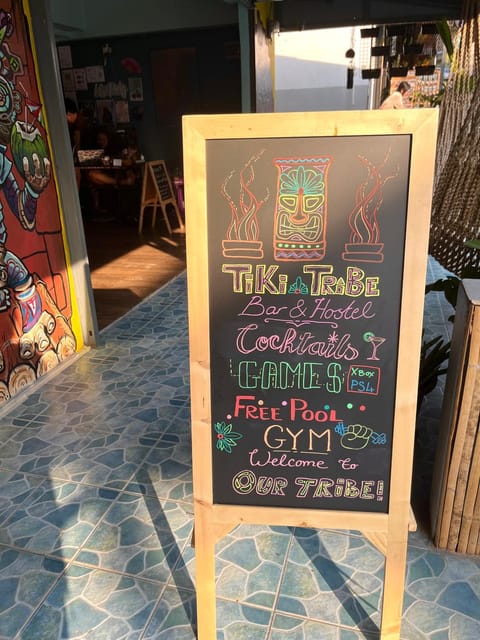 TiKi TRiBE
Bar & Hostel
Cocktails
GAMES XBOX
PS4
FREE POOL
GYM
Welcome to
OUR TRiBE!